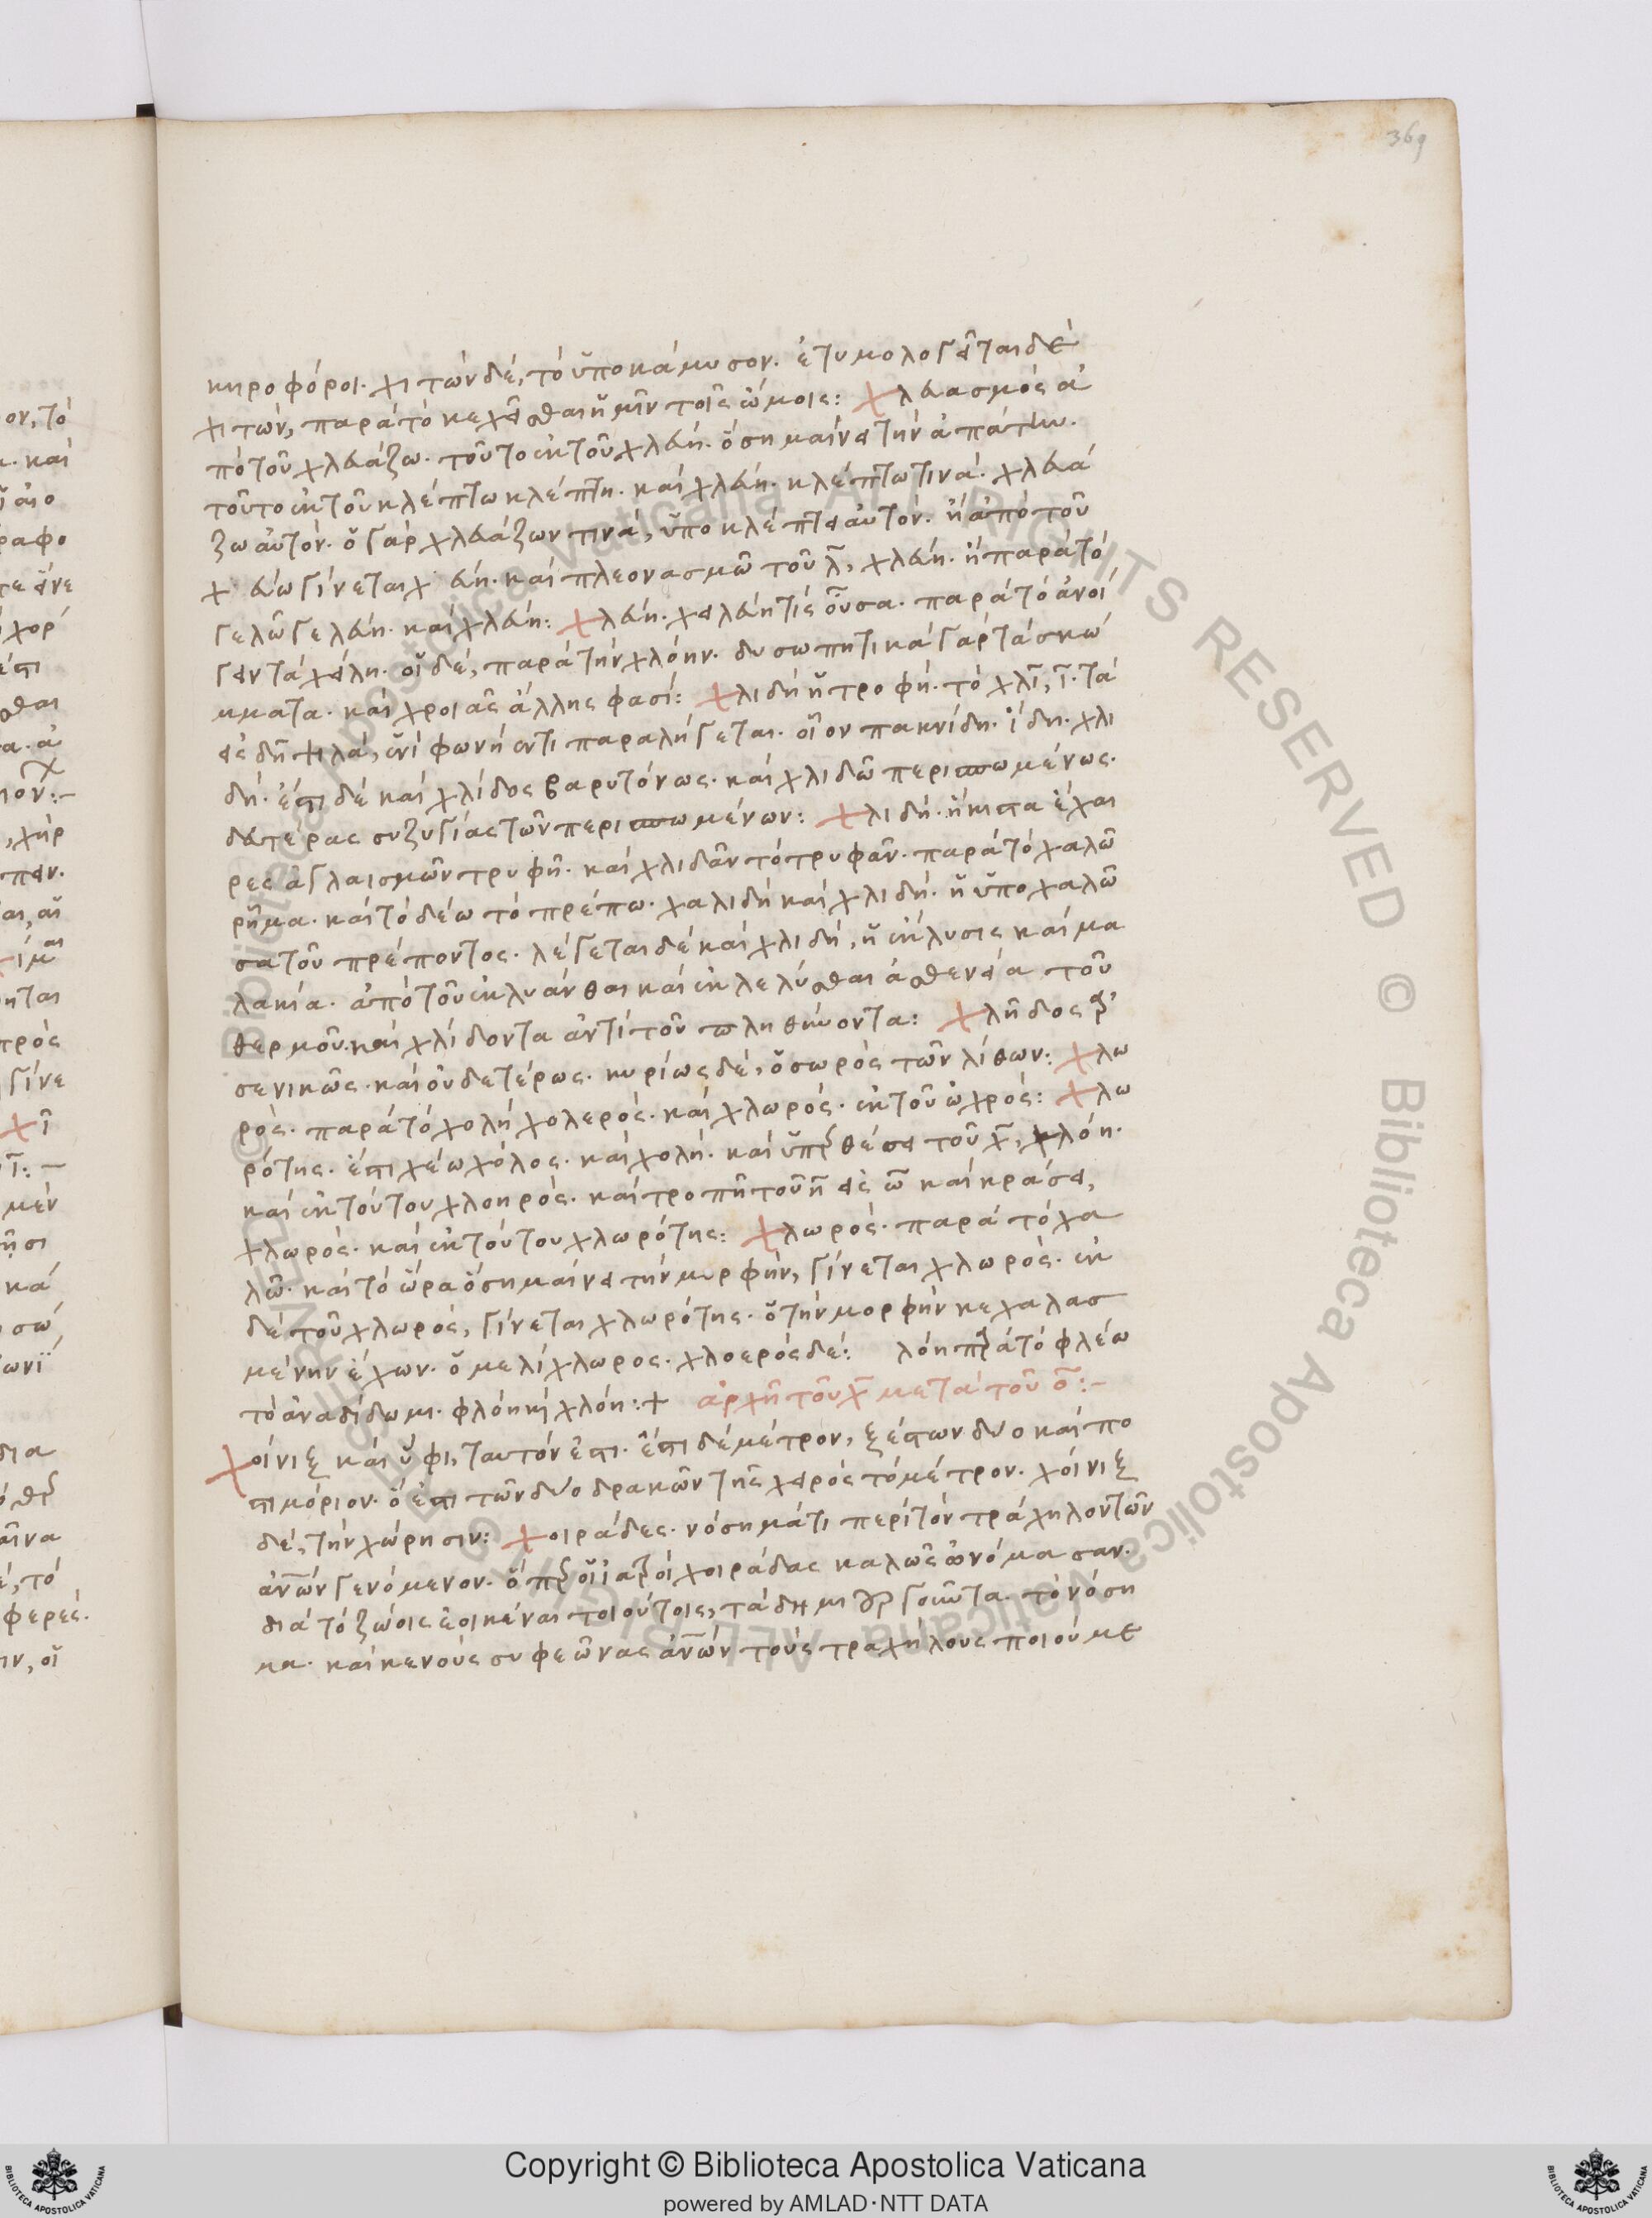 369
κηροφόροι. χιτὼν δὲ, τὸ ὑποκάμυσον. ἐτυμολογεῖται δὲ
χιτὼν, παρὰ τὸ κεχεῖσθαι ἡμῖν τοῖς ὤμοις: χλευασμὸς ἀ
πὸ τοῦ χλευάζω. τοῦτο ἐκ τοῦ χλεύη. ὃ σημαίνει τὴν ἀπάτην.
τοῦτο ἐκ τοῦ κλέπτω κλέπτη. καὶ χλεύη. κλέπτω τινά. χλευά
ζω αὐτόν. ὁ γὰρ χλευάζων τινὰ, ὑποκλέπτει αὐτόν. ἢ ἀπὸ τοῦ
χ εύω γίνεται χ εύη. καὶ πλεονασμῶ τοῦ λ, χλεύη. ἢ παρὰ τὸ
γελῶ γελεύη. καὶ χλεύη: χλεύη. χειλεύη τίς οὖσα. παρὰ τὸ ἀνοί
γειν τὰ χείλη. οἱ δὲ, παρὰ τὴν χλόην. δυσωπητικὰ γὰρ τὰ σκώ
μματα. καὶ χροιᾶς ἄλλης φασί: χλιδὴ ἡ τροφή. τὸ χλι, ι. τὰ
εἰς δη ψιλὰ, ἑνὶ φωνήεντι παραλήγεται. οἷον πακνίδη. ἴδη. χλι
δή. ἔστι δὲ καὶ χλίδος βαρυτόνως. καὶ χλιδῶ περισπωμένως.
δευτέρας συζυγίας τῶν περισπωμένων: χλιδή. ἥκιστα ἔχαι
ρες ἀγλαισμῶν τρυφῆ. καὶ χλιδᾶν τὸ τρυφᾶν. παρὰ τὸ χαλῶ
ρῆμα. καὶ τὸ δέω τὸ πρέπω. χαλιδὴ καὶ χλιδή. ἡ ὑποχαλῶ
σα τοῦ πρέποντος. λέγεται δὲ καὶ χλιδὴ, ἡ ἔκλυσις καὶ μα
λακία. ἀπὸ τοῦ ἐκλυάνθαι καὶ ἐκλελύσθαι ἀσθενεία τοῦ
θερμοῦ. καὶ χλίδοντα ἀντὶ τοῦ πληθύνοντα: χλῆδος ἀρ
σενικῶς. καὶ οὐδετέρως. κυρίως δὲ, ὁ σωρὸς τῶν λίθων: χλω
ρός. παρὰ τὸ χολὴ χολερός. καὶ χλωρός. ἐκ τοῦ ὠχρός: χλω
ρότης. ἔστι χέω χόλος. καὶ χολή. καὶ ὑπερθέσει τοῦ χ, χλόη.
καὶ ἐκ τούτου χλοηρός. καὶ τροπῆ τοῦ η εἰς ω καὶ κράσει,
χλωρός. καὶ ἐκ τούτου χλωρότης: χλωρός. παρὰ τὸ χα
λῶ. καὶ τὸ ὥρα ὃ σημαίνει τὴν μορφὴν, γίνεται χλωρός. ἐκ
δὲ τοῦ χλωρὸς, γίνεται χλωρότης. ὁ τὴν μορφὴν κεχαλασ
μένην ἔχων. ὁ μελίχλωρος. χλοερὸς δέ: λόη παρὰ τὸ φλέω
τὸ ἀναδίδωμι. φλόη καὶ χλόη:+ ἀρχὴ τοῦ χ μετὰ τοῦ ο:-
χοίνιξ καὶ ὕφι, ταυτόν ἐστι. ἔστι δὲ μέτρον, ξέστων δύο καὶ πο
στιμόριον. ὅ ἐστι τῶν δύο δρακῶν τῆς χειρὸς τὸ μέτρον. χοίνιξ
δὲ, τὴν χώρησιν: χοιράδες. νόσημά τι περὶ τὸν τράχηλον τῶν
ἀνων γενόμενον. ὅπερ οἱ ἰατροὶ χοιράδας καλῶς ὠνόμασαν.
διὰ τὸ ζώοις ἐοικέναι τοιούτοις, τὰ δημιουργοῦντα. τὸ νόση
μα. καὶ κενοὺς συφεῶνας ἀνων τοὺς τραχήλους ποιούμε